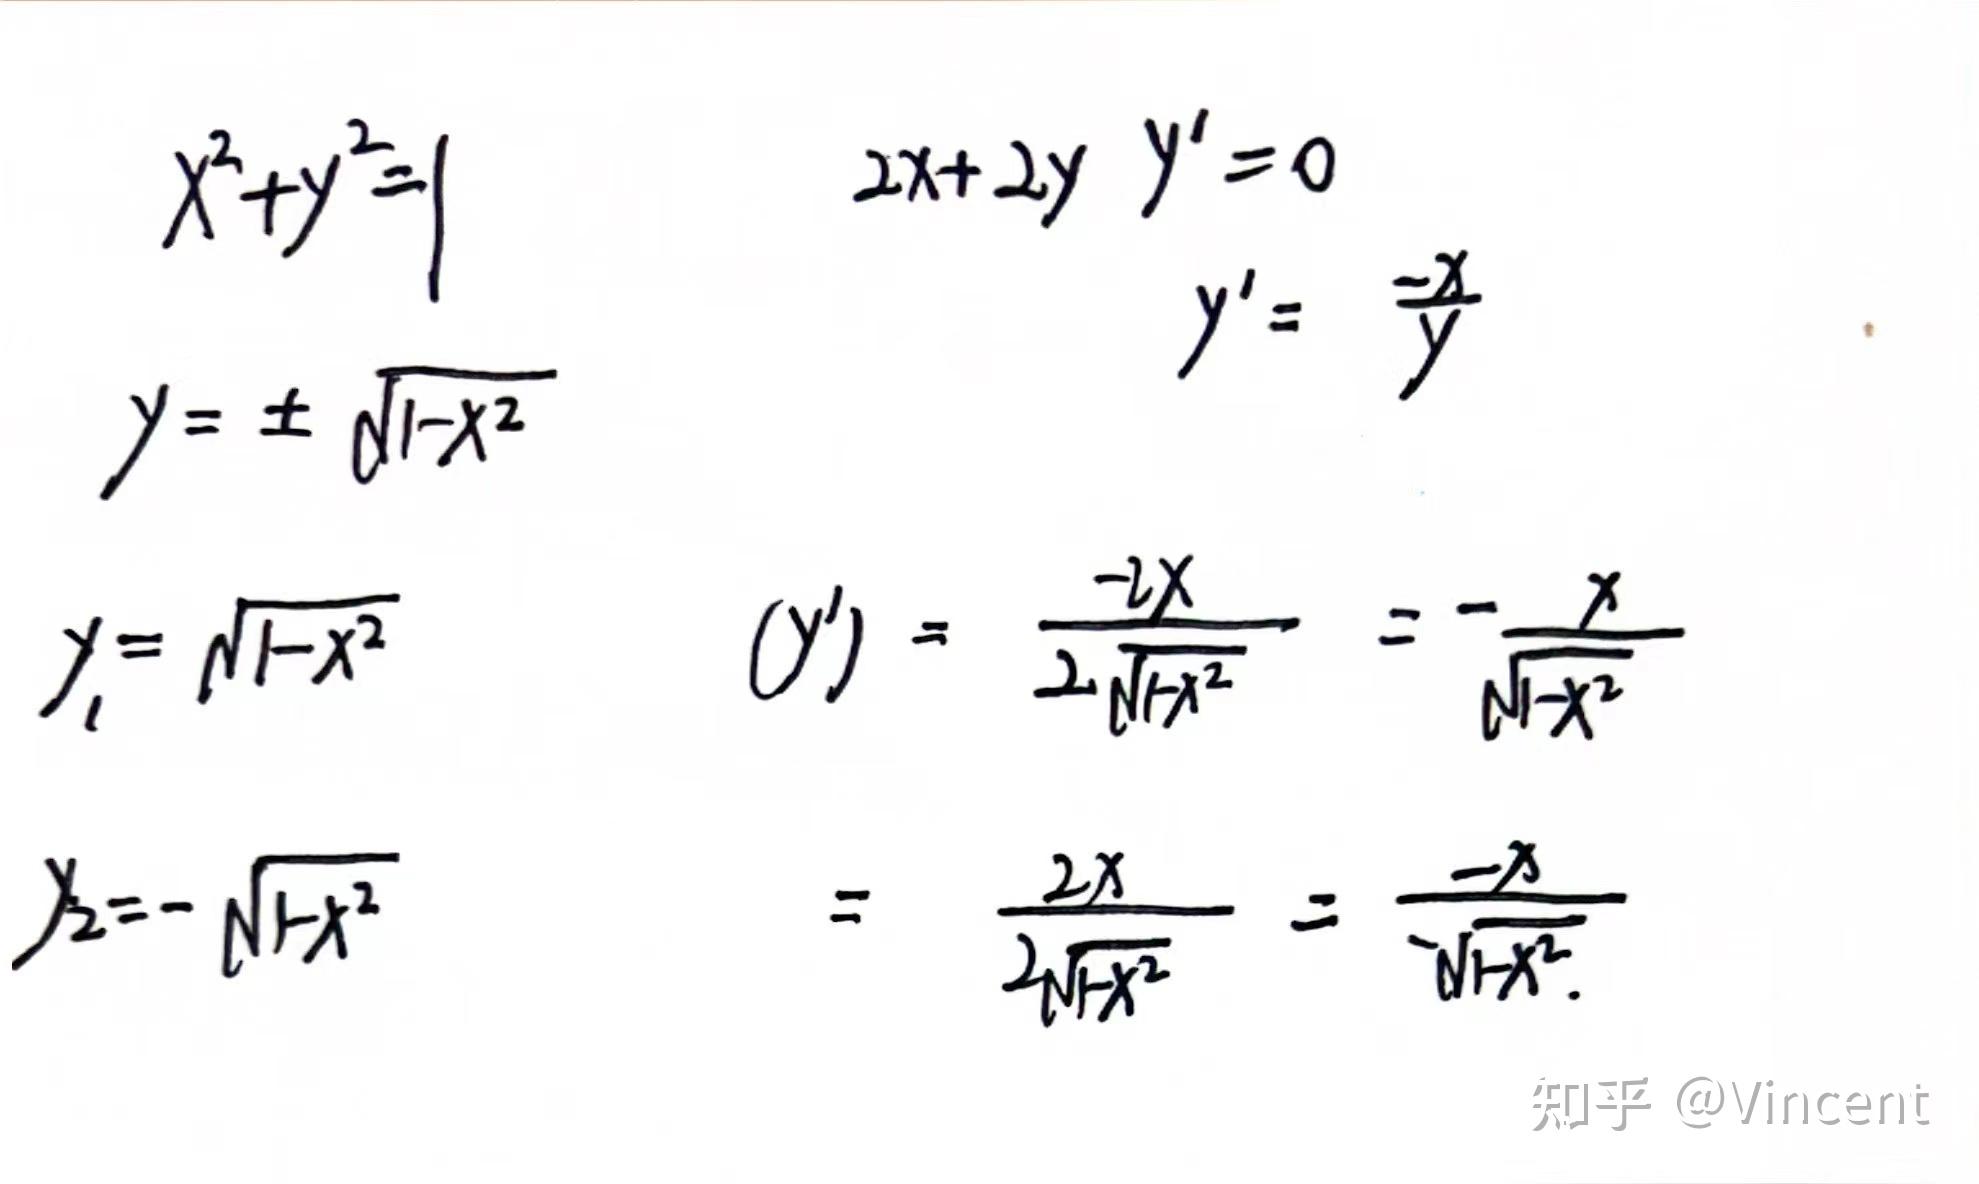 x²+y²=1    2x+2y y'=0
y'= -x/y
y= ± √(1-x²)
y₁= √(1-x²)    (y') = -2x/(2√(1-x²)) = - x/√(1-x²)
y₂=- √(1-x²)    = 2x/(2√(1-x²)) = -x/(-√(1-x²)).
知乎 @Vincent